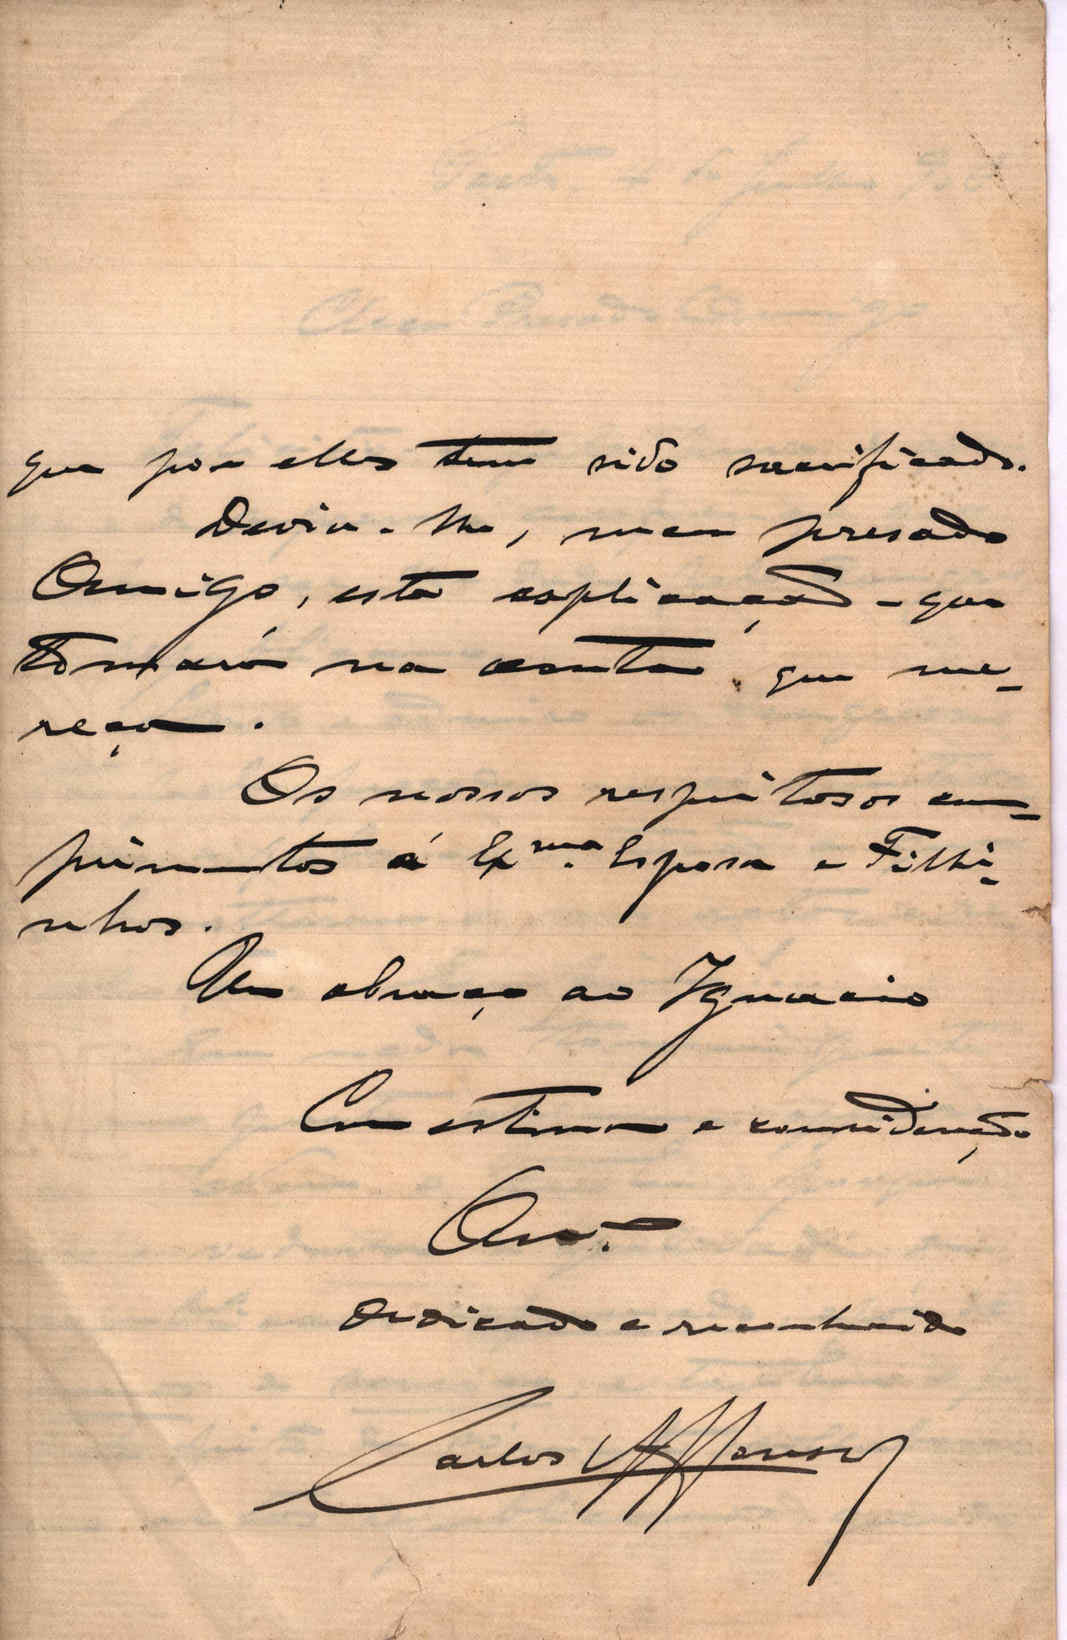 que por elles tem sido sacrificado.
Devia-lhe, meu presado
Amigo, esta explicação - que
tomará na conta que me-
reça.
Os nossos respeitosos cum-
primentos á Ex.ma Esposa e Filhi-
nhos.
Um abraço ao Ignacio
Com estima e consideração
Am.º
Dedicado e reconhecido
Carlos Affonso